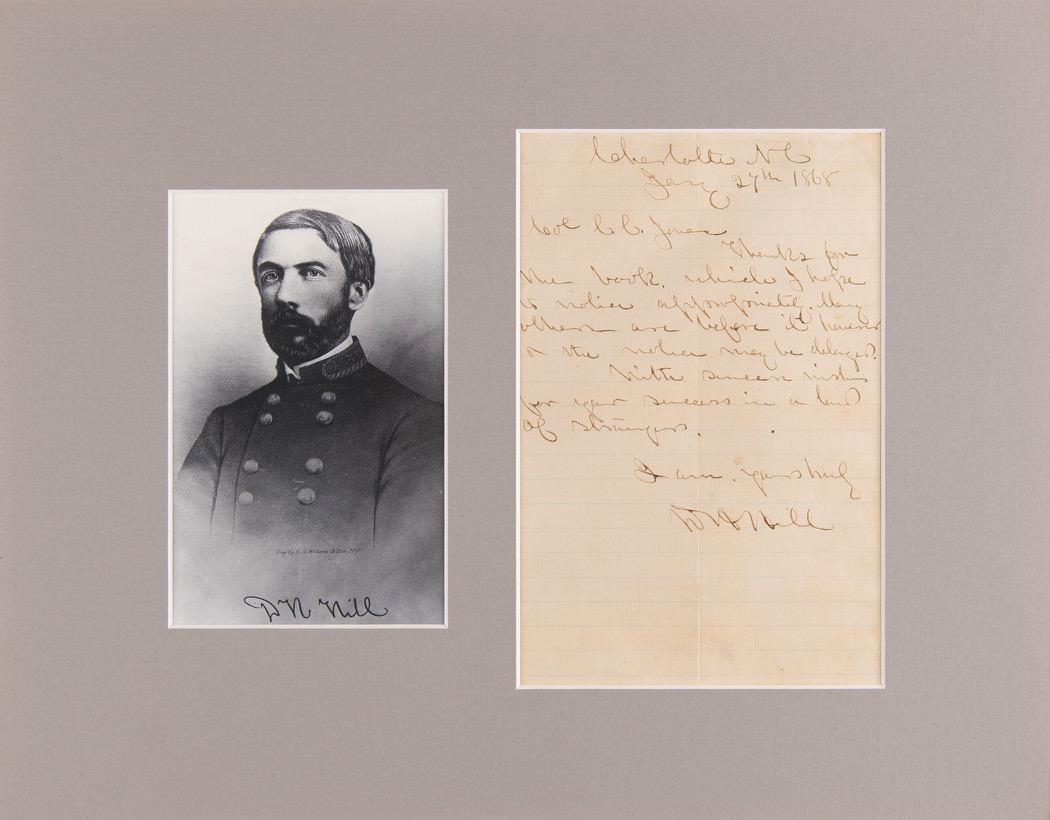 Eng. by E. G. Williams & Bro. N.Y.
D H Hill
Charlotte N C
Jany 27th 1868
Col C. C. Jones
Thanks for
the book, which I hope
to notice appropriately. Many
others are before it however
& the notice may be delayed.
With sincere wishes
for your success in a land
of strangers.
I am, yours truly
D H Hill